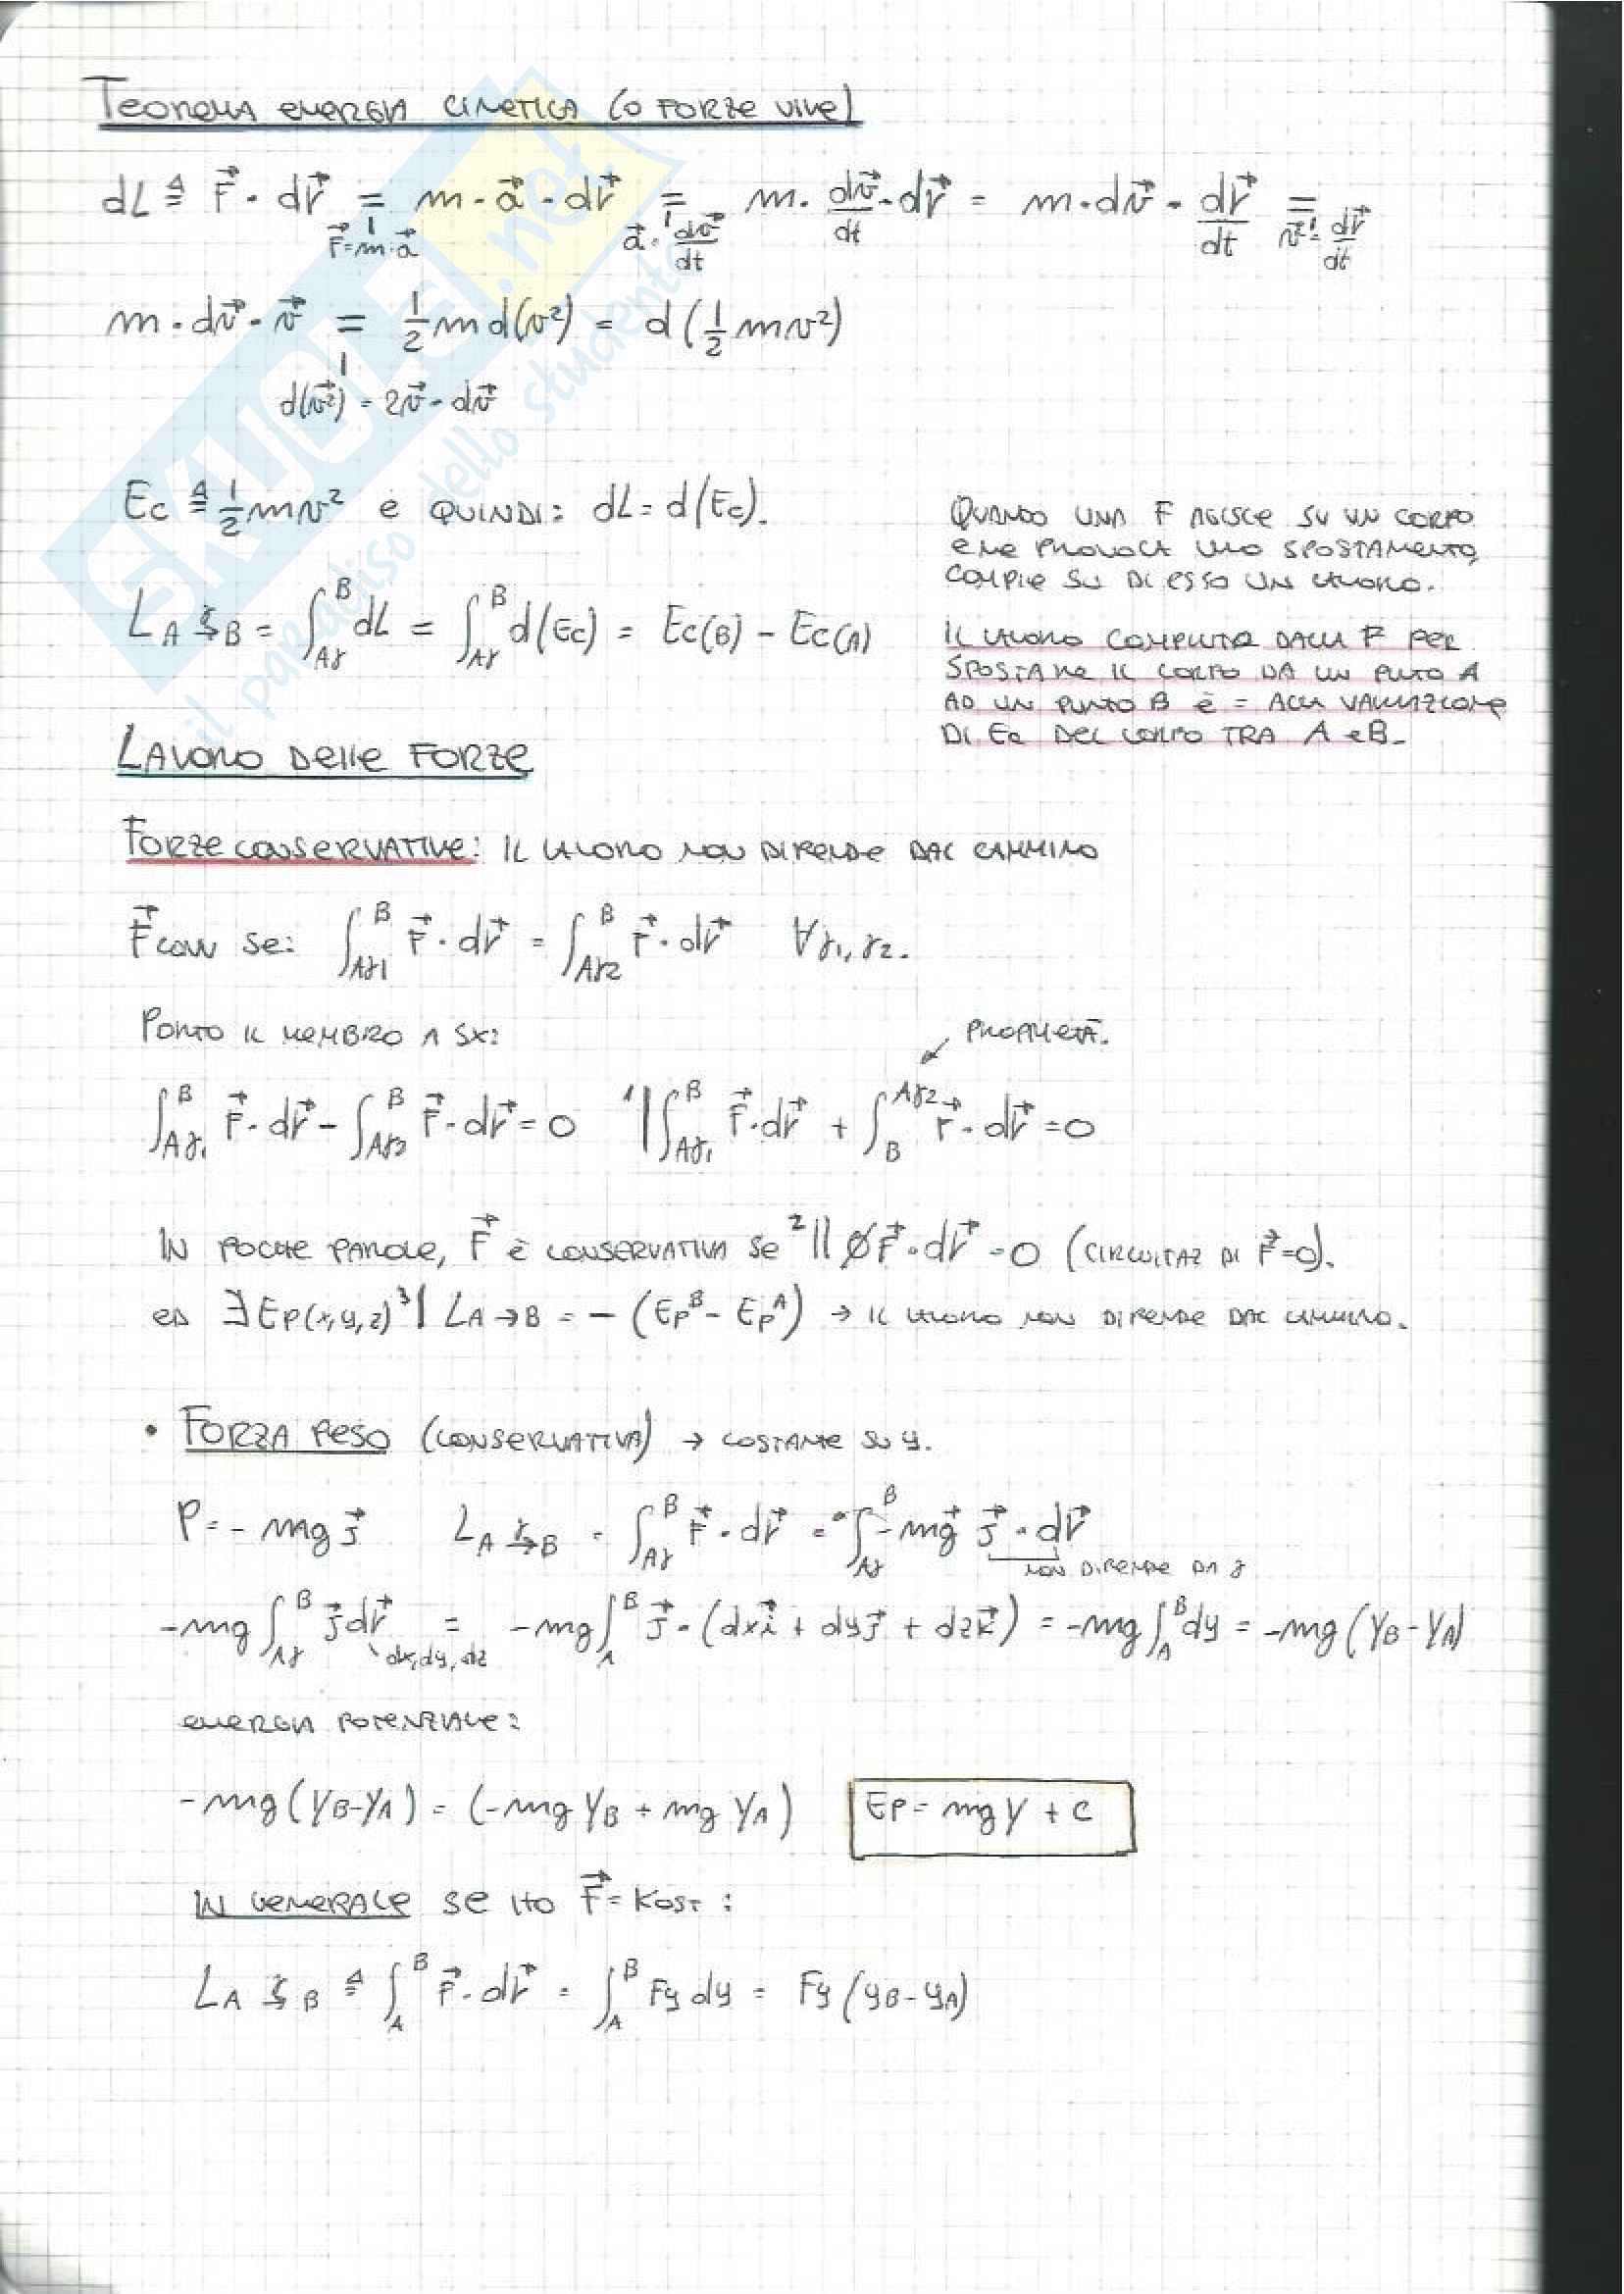 TEOREMA ENERGIA CINETICA (O FORZE VIVE)
dL ≜ F⃗ · dr⃗ = m · a⃗ · dr⃗ = m · dv⃗/dt · dr⃗ = m · dv⃗ · dr⃗/dt =
F⃗=m·a⃗ a⃗ = dv⃗/dt v⃗ = dr⃗/dt
m · dv⃗ · v⃗ = 1/2 m d(v²) = d(1/2 mv²)
d(v⃗²) = 2v⃗ · dv⃗
Ec ≜ 1/2 mv² e QUINDI: dL = d(Ec).
L A γ→ B = ∫Aγ^B dL = ∫Aγ^B d(Ec) = Ec(B) – Ec(A)
QUANDO UNA F AGISCE SU UN CORPO
E NE PROVOCA UNO SPOSTAMENTO,
COMPIE SU DI ESSO UN LAVORO.
IL LAVORO COMPIUTO DALLA F PER
SPOSTARE IL CORPO DA UN PUNTO A
AD UN PUNTO B È = ALLA VARIAZIONE
DI Ec DEL CORPO TRA A e B.
LAVORO DELLE FORZE
FORZE CONSERVATIVE: IL LAVORO NON DIPENDE DAL CAMMINO
F⃗ cons se: ∫Aγ1^B F⃗ · dr⃗ = ∫Aγ2^B F⃗ · dr⃗ ∀γ1, γ2.
PORTO IL MEMBRO A SX:
PROPRIETÀ.
∫Aγ1^B F⃗ · dr⃗ – ∫Aγ2^B F⃗ · dr⃗ = 0 1| ∫Aγ1^B F⃗ · dr⃗ + ∫B^Aγ2 F⃗ · dr⃗ = 0
IN POCHE PAROLE, F⃗ È CONSERVATIVA SE 2|| ∮F⃗ · dr⃗ = 0 (CIRCUITAZ DI F⃗=0).
ED ∃ Ep(x,y,z) 3| L A→B = – (Ep^B – Ep^A) → IL LAVORO NON DIPENDE DAL CAMMINO.
• FORZA PESO (CONSERVATIVA) → COSTANTE SU y.
P = – mg j⃗ L A γ→ B = ∫Aγ^B F⃗ · dr⃗ = ∫Aγ^B –mg⃗ j⃗ · dr⃗
NON DIPENDE DA γ
–mg ∫Aγ^B j⃗ dr⃗ = –mg ∫A^B j⃗ · (dx i⃗ + dy j⃗ + dz k⃗) = –mg ∫A^B dy = –mg (YB – YA)
dx, dy, dz
ENERGIA POTENZIALE:
–mg (YB–YA) = (–mg YB + mg YA) Ep = mg Y + c
IN GENERALE SE HO F⃗ = KOST :
L A γ→ B ≜ ∫A^B F⃗ · dr⃗ = ∫A^B Fy dy = Fy (yB – yA)
SKUOLA.net
il paradiso dello studente